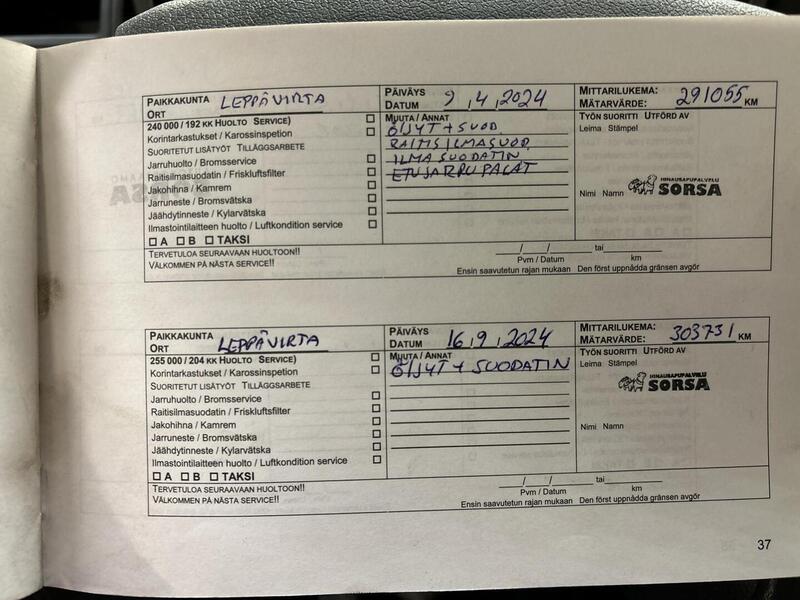 PAIKKAKUNTA LEPPÄVIRTA
ORT
PÄIVÄYS
DATUM 9.4.2024
MITTARILUKEMA:
MÄTARVÄRDE: 291055 KM
240 000 / 192 KK HUOLTO SERVICE)
Korintarkastukset / Karossinspetion
SUORITETUT LISÄTYÖT TILLÄGGSARBETE
Jarruhuolto / Bromsservice
Raitisilmasuodatin / Friskluftsfilter
Jakohihna / Kamrem
Jarruneste / Bromsvätska
Jäähdytinneste / Kylarvätska
Ilmastointilaitteen huolto / Luftkondition service
A B TAKSI
MUUTA / ANNAT
ÖLJYT + SUOD
RAITISILMASUOD.
ILMASUODATIN
ETUJARRUPALAT
TYÖN SUORITTI UTFÖRD AV
Leima Stämpel
Nimi Namn
HINAUSAPUPALVELU
SORSA
TERVETULOA SEURAAVAAN HUOLTOON!!
VÄLKOMMEN PÅ NÄSTA SERVICE!!
/ / tai
Pvm / Datum km
Ensin saavutetun rajan mukaan Den först uppnådda gränsen avgör
PAIKKAKUNTA LEPPÄVIRTA
ORT
PÄIVÄYS
DATUM 16.9.2024
MITTARILUKEMA:
MÄTARVÄRDE: 303731 KM
255 000 / 204 KK HUOLTO SERVICE)
Korintarkastukset / Karossinspetion
SUORITETUT LISÄTYÖT TILLÄGGSARBETE
Jarruhuolto / Bromsservice
Raitisilmasuodatin / Friskluftsfilter
Jakohihna / Kamrem
Jarruneste / Bromsvätska
Jäähdytinneste / Kylarvätska
Ilmastointilaitteen huolto / Luftkondition service
A B TAKSI
MUUTA / ANNAT
ÖLJYT + SUODATIN
TYÖN SUORITTI UTFÖRD AV
Leima Stämpel
HINAUSAPUPALVELU
SORSA
Nimi Namn
TERVETULOA SEURAAVAAN HUOLTOON!!
VÄLKOMMEN PÅ NÄSTA SERVICE!!
/ / tai
Pvm / Datum km
Ensin saavutetun rajan mukaan Den först uppnådda gränsen avgör
37